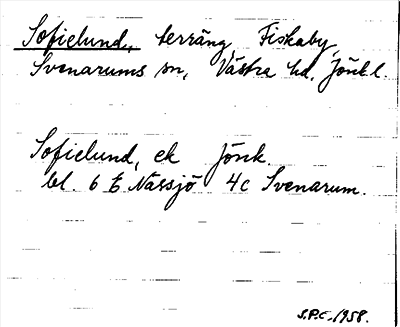 Sofielund, terräng, Fiskaby,
Svenarums sn, Västra hd, Jönk l.
Sofielund, ek Jönk.
bl. 6 E Nässjö 4c Svenarum.
S.P.C. 1958.